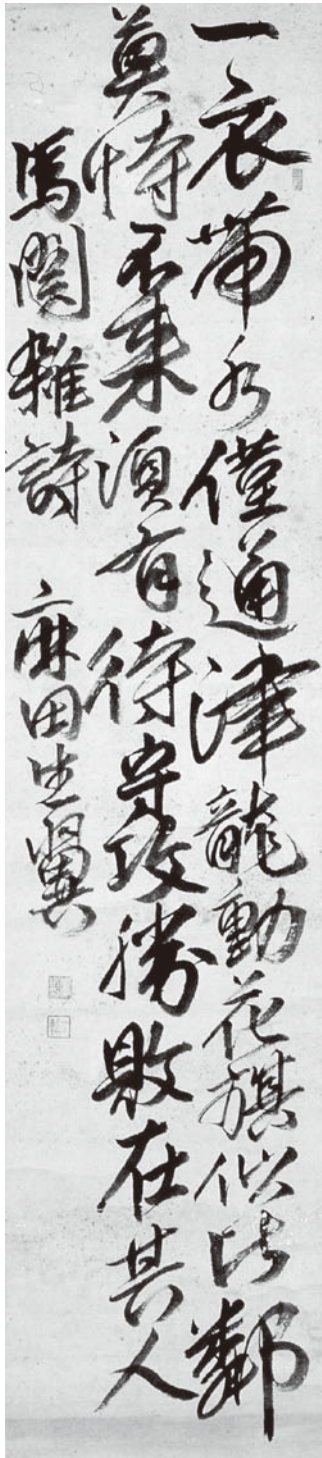 一衣帯水僅通津龍動花旗似比鄰
莫恃不来須有待守攻勝敗在其人
馬関雑詩　麻田生翼